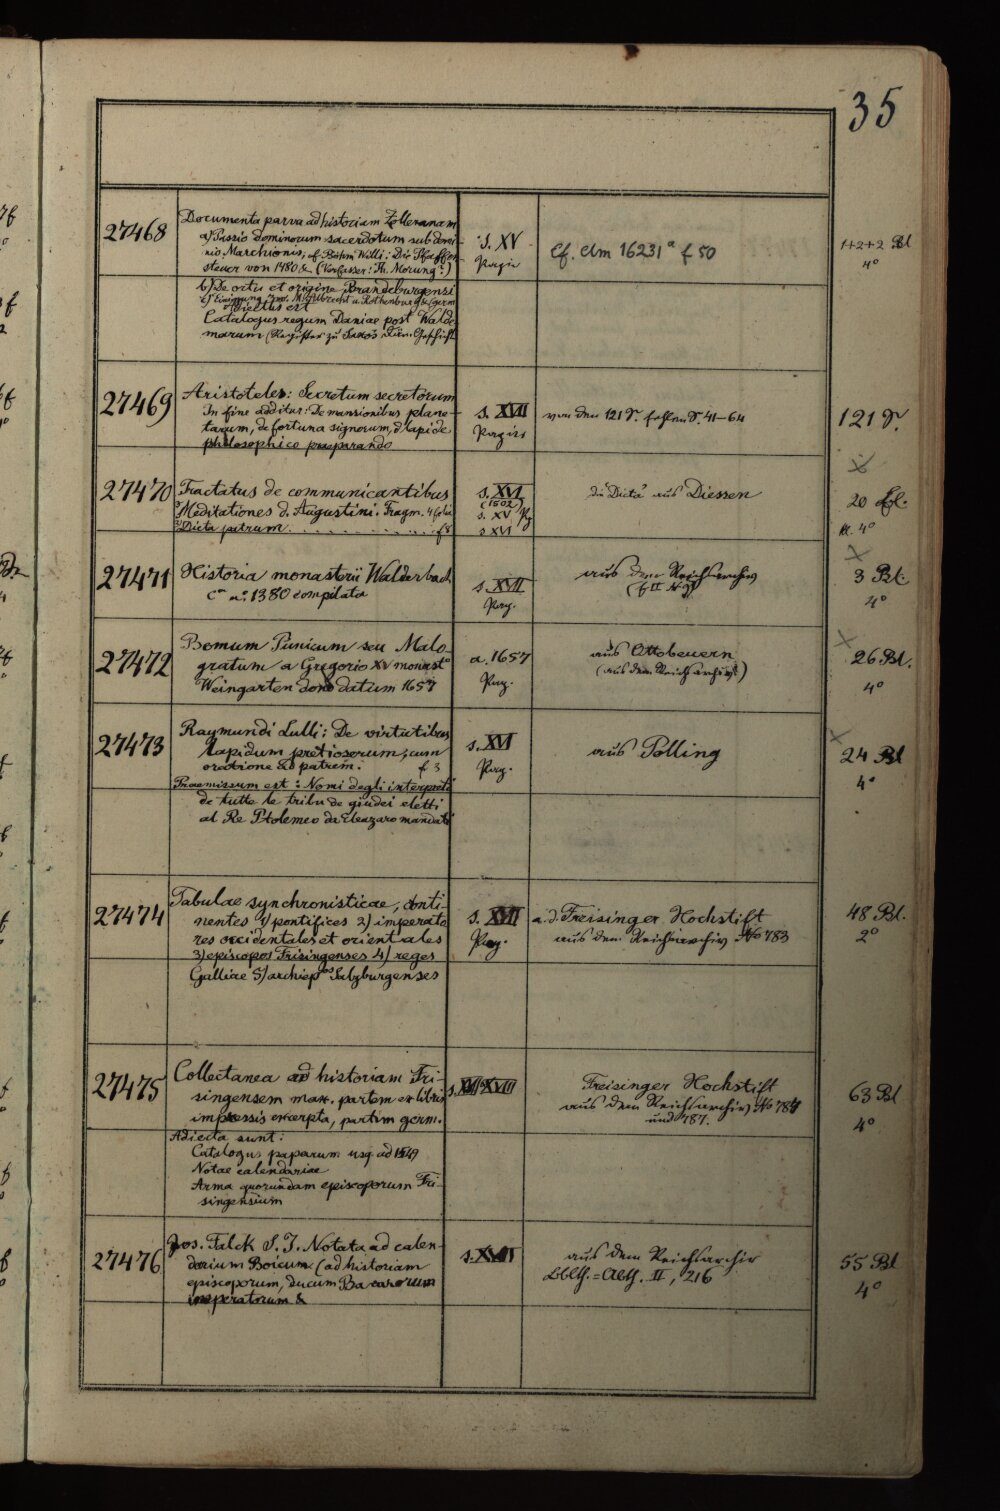 35
27468
Documenta parva ad historiam Zolleranam
a) Passio dominorum sacerdotum sub domi-
nio Marchionis, cf. Böhm Willi: Die Pfaffen-
steuer von 1480 &. (Verfasser: Th. Morung?)
b) De ortu et origine Brandeburgensi
c) Einigung zw. M. Albrecht u. Rothenburg &. (germ.
Adiectus est
Catalogus regum Daniae post Walde-
marum (Register zu Saxos Dän. Geschicht
s. XV
Papier
Cf. clm 16231ᵃ f 50
1+2+2 Bl
4°
27469
Aristoteles: Secretum secretorum
In fine additur: De mansionibus plane-
tarum, de fortuna signorum, d. lapide
philosophico praeparando
s. XVII
Papier
von den 121 S. fehlen S. 41–64
121 S.
27470
Tractatus de communicantibus
Meditationes d. Augustini. Fragm. 4 folia
Dicta patrum . . . . . . . . . f 8
s. XVI
(1502)
s. XV Pg
s XVI
die Dicta aus Diessen
20 Bl.
kl. 4°
27471
Historia monasterii Walderbach
cᵃ aᵒ. 1380 compilata
s. XVII
Pap.
aus dem Reichsarchiv
3 Bl.
4°
27472
Bomum Punicum seu Malo-
gratum a Gregorio XV monastᵒ
Weingarten dono datum 1657
a. 1657
Pap.
aus Ottobeuern
(aus dem Reichsarchiv)
26 Bl.
4°
27473
Raymundi Lulli: De virtutibus
lapidum pretiosorum, cum
oratione ad patrem. f 3
Praemissum est: Nomi degli interpreti
de tutte le tribu de giudei eletti
al Re Ptolemeo da Eleazaro mandati
s. XVI
Pap.
aus Polling
24 Bl
4°
27474
Tabulae synchronisticae, conti-
nentes 1) pontifices 2) imperato
res occidentales et orientales
3) episcopos Frisingenses 4) reges
Galliae 5) archiepᵒˢ Salzburgenses
s. XVII
Pap.
a. d. Freisinger Hochstift
aus dem Reichsarchiv No 783
48 Bl.
2°
27475
Collectanea ad historiam Fri-
singensem max. partem ex libris
impressis excerpta, partim germ.
Adiecta sunt:
Catalogus paparum usq ad 1549
Notae calendariae
Arma quorundam episcoporum Fri-
singensium
s. XVI–XVII
Freisinger Hochstift
aus dem Reichsarchiv No 784
und 787.
63 Bl
4°
27476
Jos. Falck S. J. Notata ad calen-
darium Boicum (ad historiam
episcoporum, ducum Bavarorum
imperatorum &
s. XVII
aus dem Reichsarchiv
II, 216
55 Bl
4°